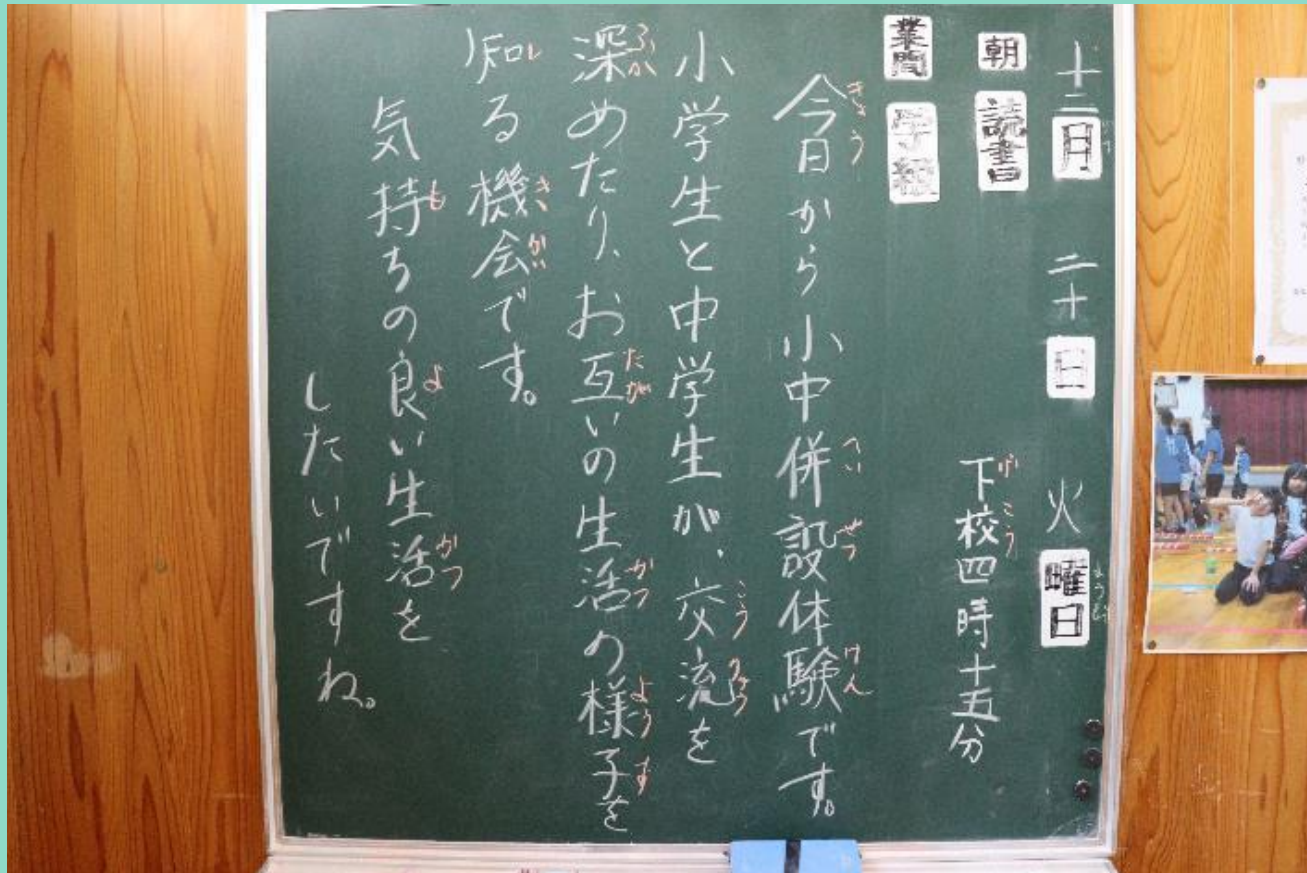 十二月 二十日 火曜日
朝 読書 下校四時十五分
業間 学級
今日から小中併設体験です。
小学生と中学生が、交流を
深めたり、お互いの生活の様子を
知る機会です。
気持ちの良い生活を
したいですね。